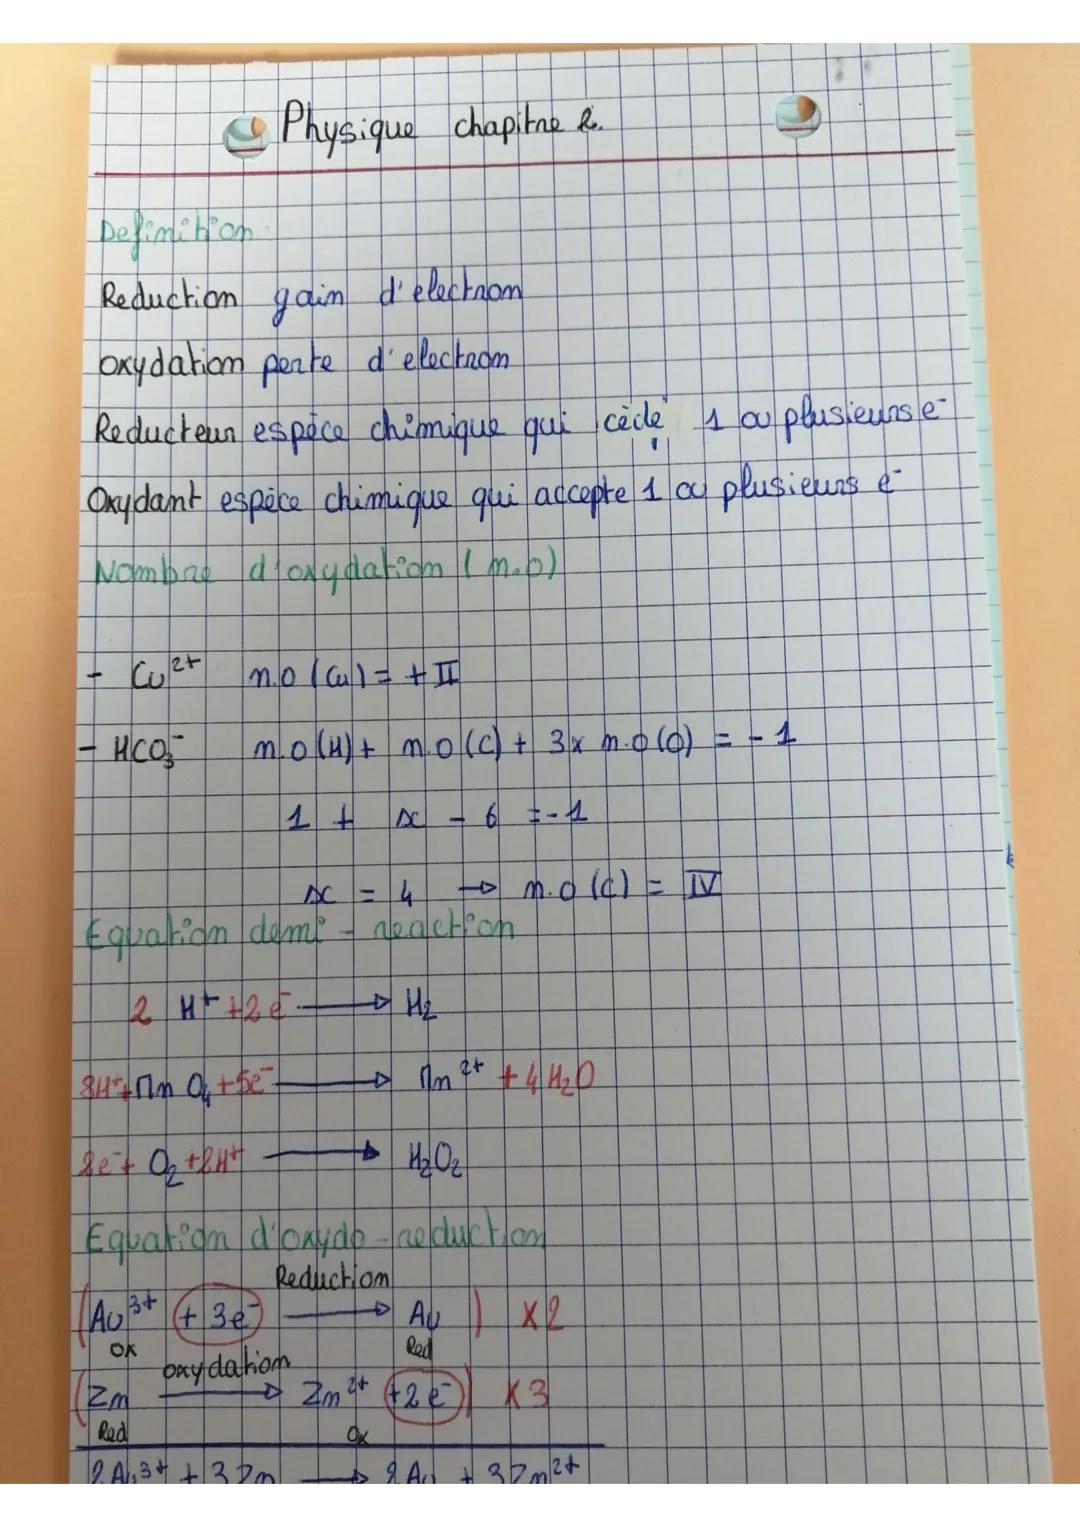 Physique chapitre 2.
Definition
Reduction gain d'electron
oxydation perte d'electron
Reducteur espèce chimique qui cède 1 ou plusieurs e⁻
Oxydant espèce chimique qui accepte 1 ou plusieurs e⁻
Nombre d'oxydation (n.o)
- Cu²⁺ n.o (Cu) = + II
- HCO₃⁻ n.o (H) + n.o (C) + 3x n.o (O) = - 1
1 + x - 6 = - 1
x = 4 → n.o (C) = IV
Equation demi - reaction
2 H⁺ + 2 e⁻ → H₂
8H⁺ + Mn O₄ + 5e⁻ → Mn²⁺ + 4 H₂O
2e⁻ + O₂ + 2H⁺ → H₂O₂
Equation d'oxydo - reduction
Reduction
(Au³⁺ + 3e⁻ → Au) x2
ox Red
oxydation
(Zn → Zn²⁺ + 2e⁻) x3
Red Ox
2 Au³⁺ + 3 Zn → 2 Au + 3 Zn²⁺